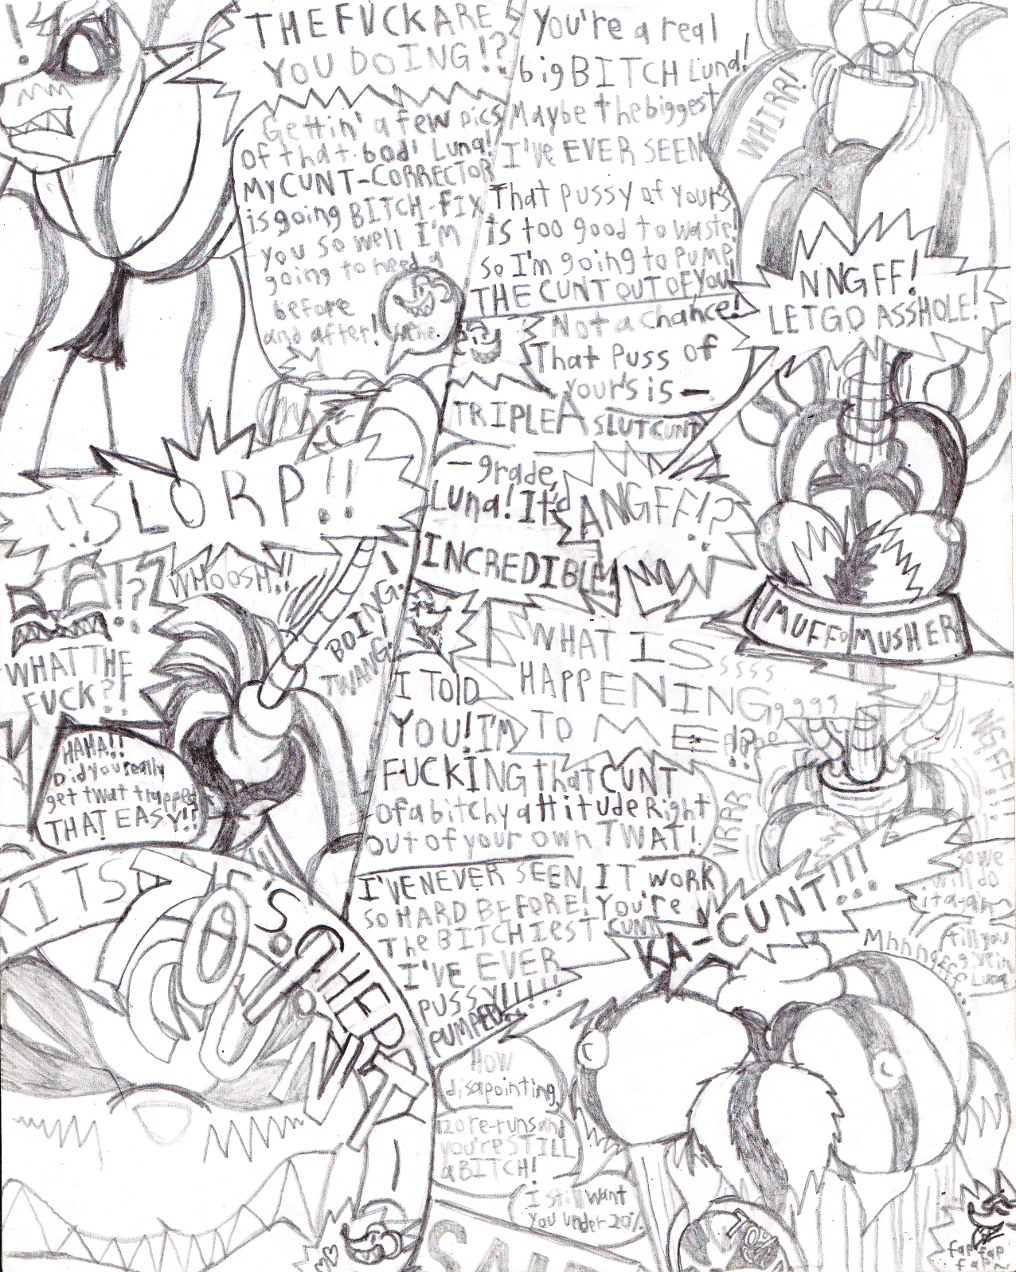 THE FUCK ARE
YOU DOING!?
Gettin' a few pics
of that bod' Luna!
MY CUNT-CORRECTOR
is going BITCH-FIX
you so well I'm
going to need a
before
and after!
LORP!!
!?
WHAT THE
FUCK?!
WHOOSH!!
BOING
TWANG
HAHA!!
Did you really
get twat trapped
THAT EASY!?
You're a real
big BITCH Luna!
Maybe the biggest
I'VE EVER SEEN
That pussy of yours
is too good to waste!
so I'm going to PUMP
THE CUNT OUT OF YOU!
WHIRR!
NNGFF!
LET GO ASSHOLE!
Not a chance!
That puss of
yours is —
TRIPLE A SLUTCUNT
— grade,
Luna! It's
INCREDIBLE!
ANGFF!?
MUFF MUSHER
WHAT IS
HAPPENING
TO ME
I TOLD
YOU! I'M
FUCKING that CUNT
of a bitchy attitude Right
out of your own TWAT!
VRRR
NGFF!!!
I'VE NEVER SEEN IT work
so HARD BEFORE! You're
The BITCHIEST CUNT
I'VE EVER
PUSSY
PUMPED!!!!
KA-CUNT!!!
so we
will do
it again
till you
give in
Luna
How
disapointing,
120 re-runs and
you're STILL
a BITCH!
I still want
you under 20%
fap fap
fap~